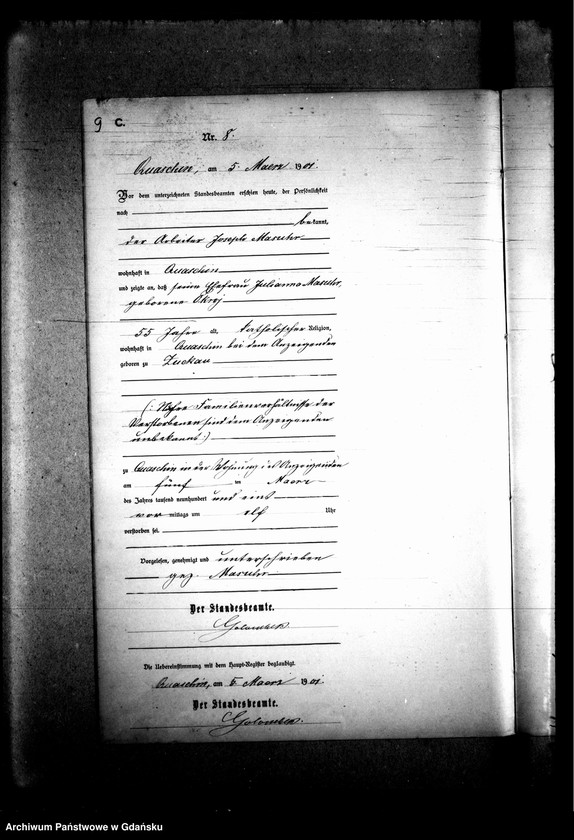 9 C.
Nr. 8.
Quaschin, am 5. Maerz 1901.
Vor dem unterzeichneten Standesbeamten erschien heute, der Persönlichkeit
nach
bekannt,
der Arbeiter Joseph
wohnhaft in Quaschin
und zeigte an, daß seine Ehefrau Julianna
geborene Okroj
55 Jahre alt, katholischer Religion,
wohnhaft in Quaschin bei dem Anzeigenden
geboren zu Zuckau
(: Familienverhältnisse der
Verstorbenen sind dem Anzeigenden
unbekannt :)
zu Quaschin in der Wohnung des Anzeigenden
am fünf ten Maerz
des Jahres tausend neunhundert und eins
vor mittags um elf Uhr
verstorben sei.
Vorgelesen, genehmigt und unterschrieben
gez.
Der Standesbeamte.
Die Uebereinstimmung mit dem Haupt-Register beglaubigt.
Quaschin, am 5. Maerz 1901.
Der Standesbeamte.
Archiwum Państwowe w Gdańsku